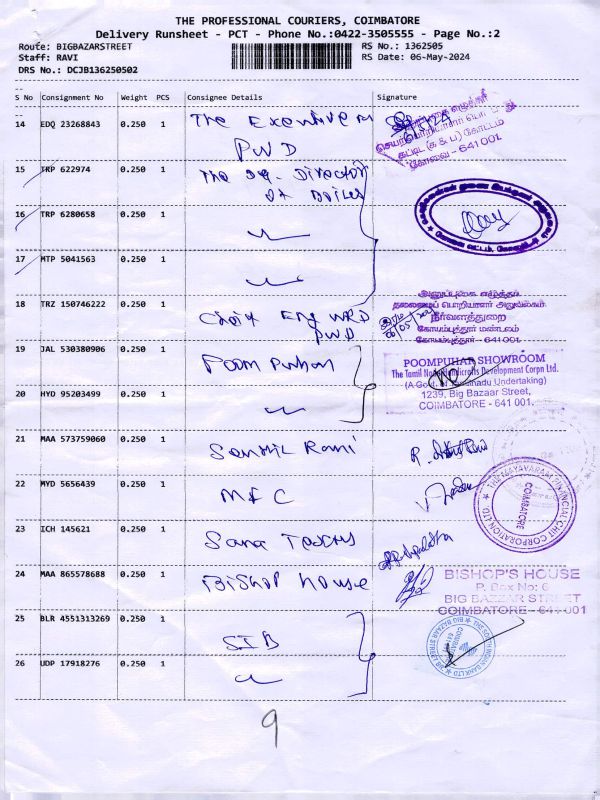 THE PROFESSIONAL COURIERS, COIMBATORE
Delivery Runsheet - PCT - Phone No.:0422-3505555 - Page No.:2
Route: BIGBAZARSTREET
RS No.: 1362505
Staff: RAVI
RS Date: 06-May-2024
DRS No.: DCJB136250502
S No Consignment No Weight PCS Consignee Details Signature
14 EDQ 23268843 0.250 1 The Executive
PWD
கோவை - 641 001
15 TRP 622974 0.250 1 The Director
16 TRP 6280658 0.250 1
17 MTP 5041563 0.250 1
18 TRZ 150746222 0.250 1 Chief Eng WRD
PWD
அனுப்புகை எழுத்தர்
தலைமைப் பொறியாளர் அலுவலகம்
நீர்வளத்துறை
கோயம்புத்தூர் மண்டலம்
கோயம்புத்தூர் - 641 001
19 JAL 530380906 0.250 1 Poom Puhar
POOMPUHAR SHOWROOM
The Tamil Nadu Handicrafts Development Corpn Ltd.
(A Govt. of Tamilnadu Undertaking)
1239, Big Bazaar Street,
COIMBATORE - 641 001.
20 HYD 95203499 0.250 1
21 MAA 573759060 0.250 1 Senthil Rani
22 MYD 5656439 0.250 1 MFC
THE MAYAVARAM FINANCIAL CHIT CORPORATION LTD.
COIMBATORE
23 ICH 145621 0.250 1 Sana
24 MAA 865578688 0.250 1 Bishop house
BISHOP'S HOUSE
P. Box No: 6
BIG BAZZAR STREET
COIMBATORE - 641 001
25 BLR 4551313269 0.250 1 SIB
THE SOUTH INDIAN BANK LTD
BIG BAZAAR STREET
COIMBATORE
26 UDP 17918276 0.250 1
9